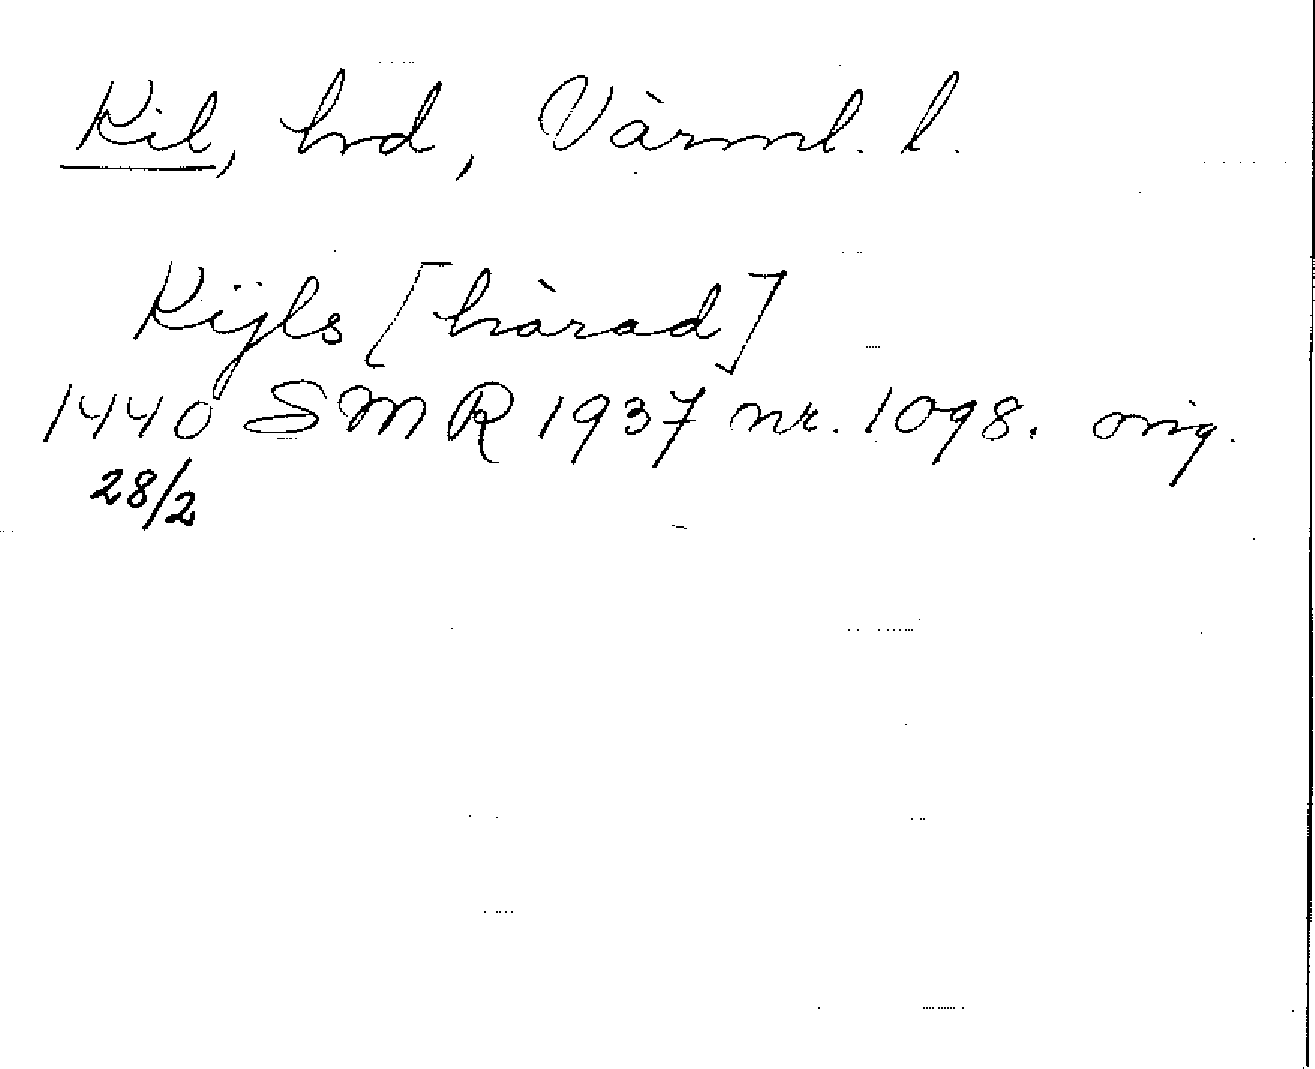 Kil, hd, Värml. l.
Kijls [härad]
1440 SMR 1937 nr. 1098. orig.
28/2